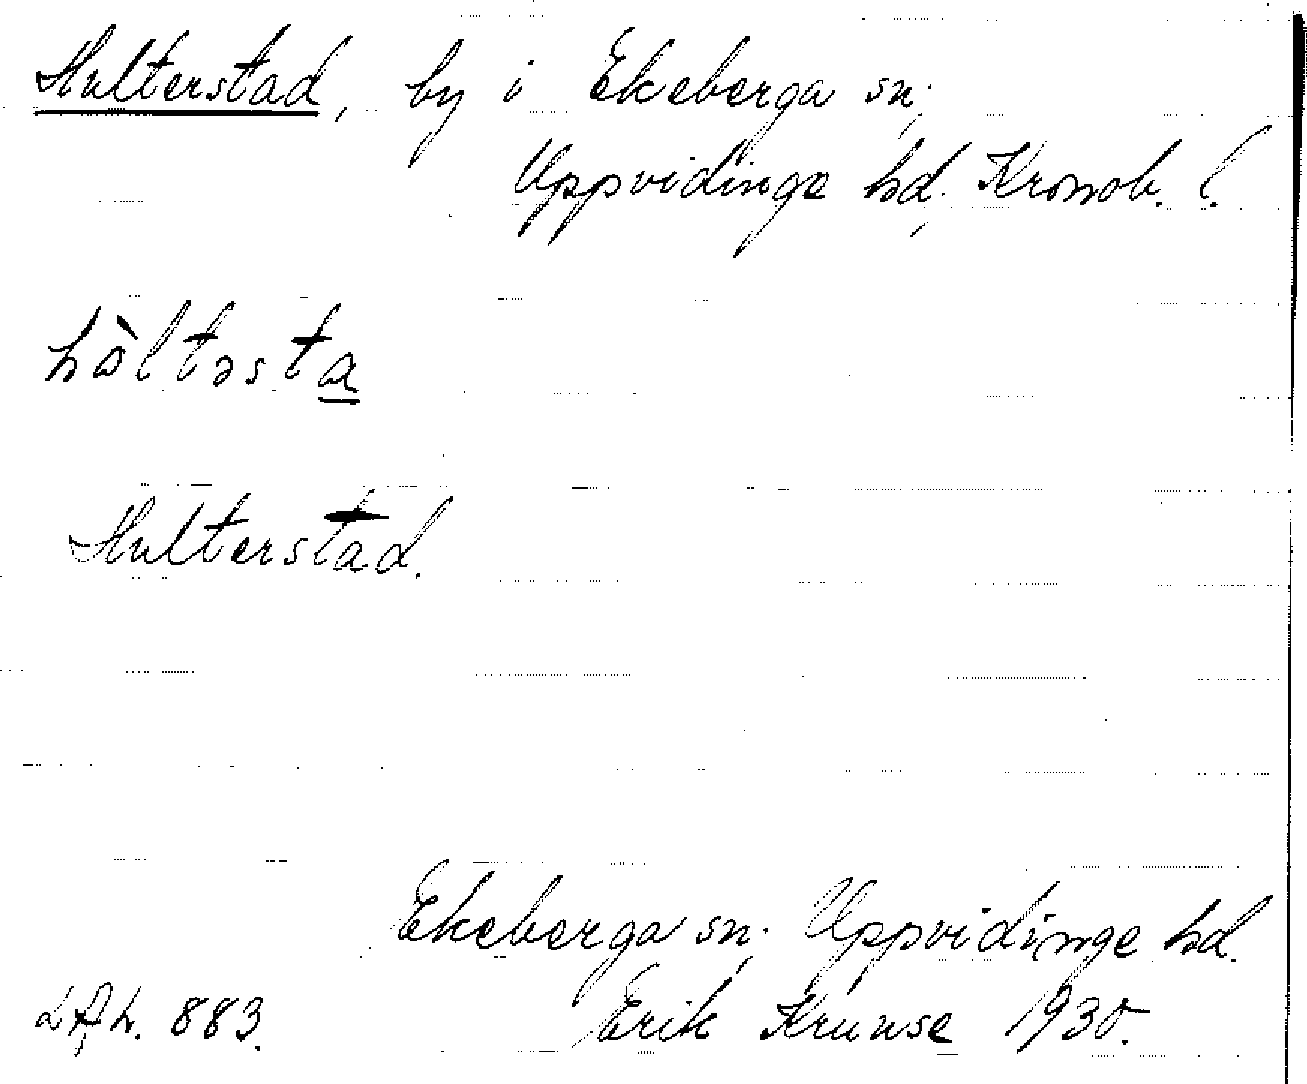 Hulterstad, by i Ekeberga sn,
Uppvidinge hd, Kronob. l.
hòltəsta
Hulterstad.
Ekeberga sn, Uppvidinge hd.
883. Erik Krunse 1930.